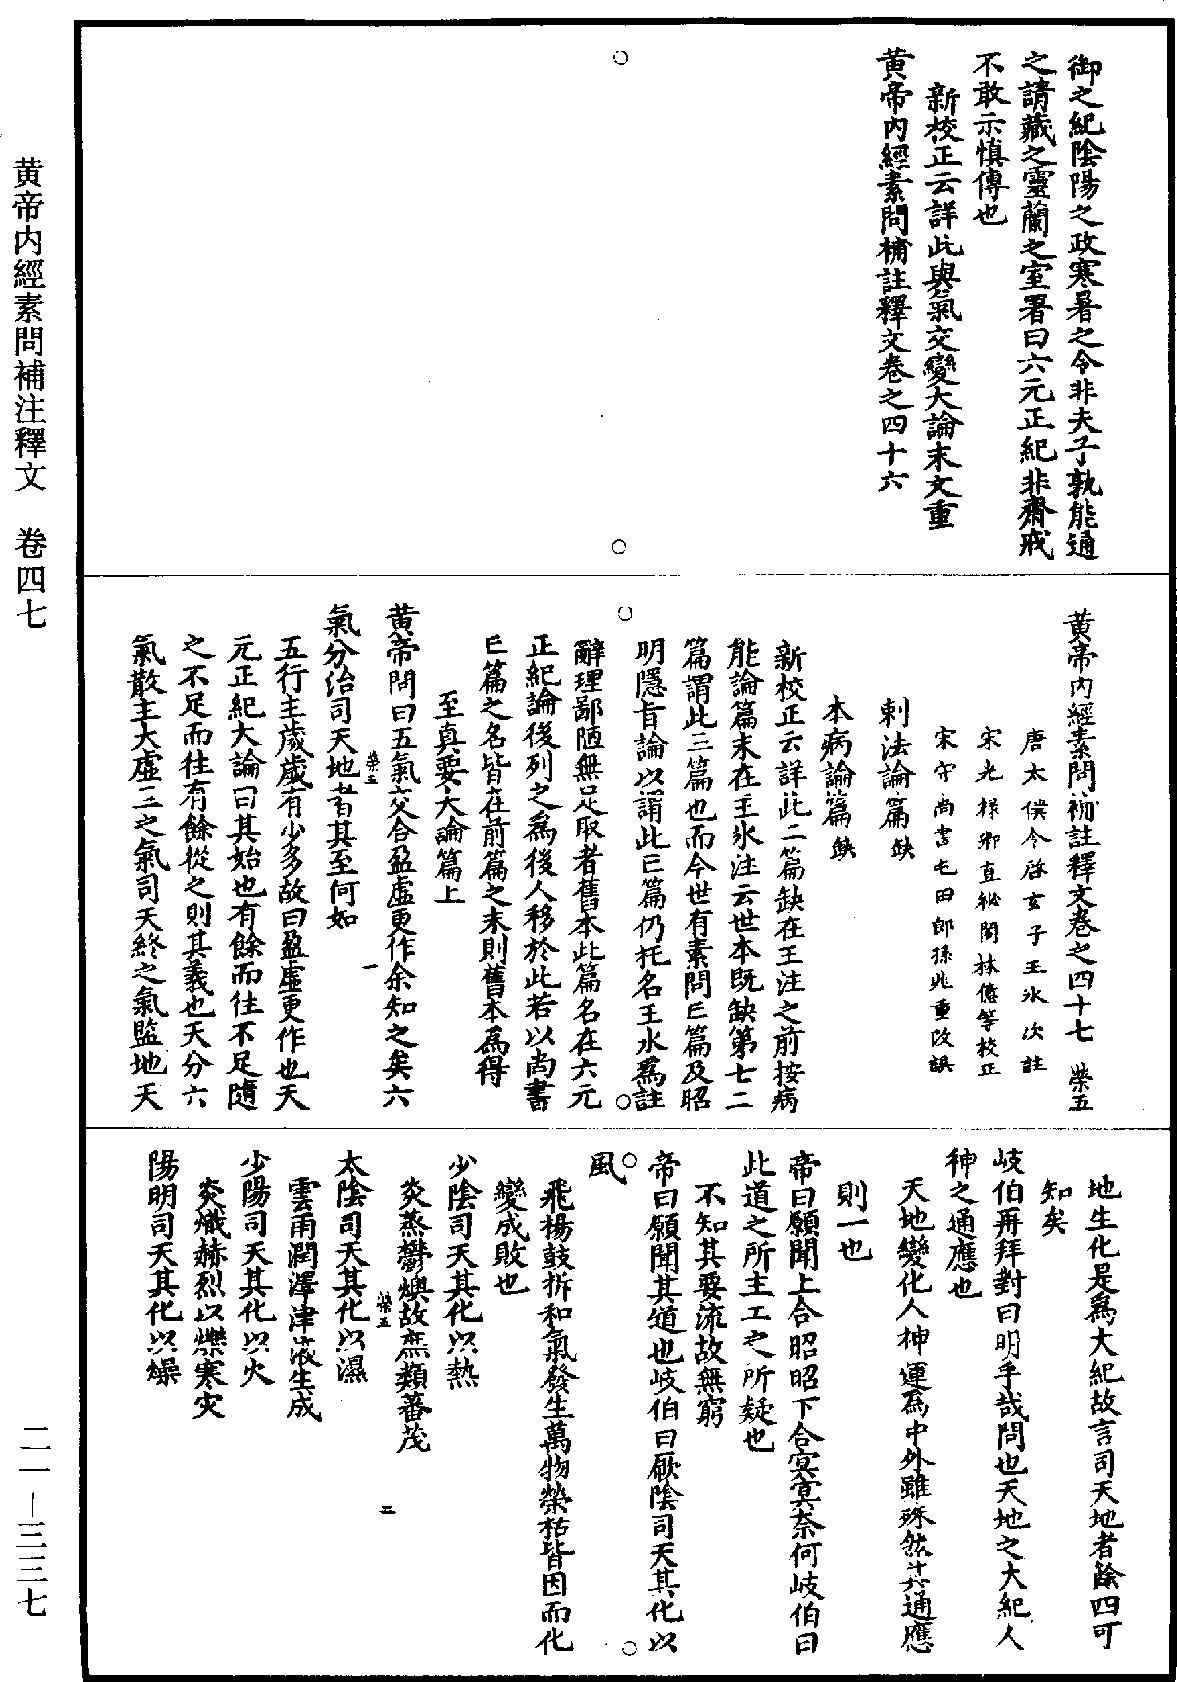 御之紀陰陽之政寒暑之令非夫子孰能通
之請藏之靈蘭之室署曰六元正紀非齋戒
不敢示慎傳也
新校正云詳此與氣交變大論末文重
黄帝内經素問補註釋文卷之四十六
黄帝内經素問補註釋文卷之四十七 榮五
唐太僕令啓玄子王氷次註
宋光祿卿直祕閣林億等校正
宋守尚書屯田郎孫兆重改誤
刺法論篇缺
本病論篇缺
新校正云詳此二篇缺在王注之前按病
能論篇末在王氷注云世本既缺第七二
篇謂此三篇也而今世有素問亡篇及昭
明隱旨論以謂此亡篇仍托名王氷爲註
辭理鄙陋無足取者舊本此篇名在六元
正紀論後列之爲後人移於此若以尚書
亡篇之名皆在前篇之末則舊本爲得
至真要大論篇上
黄帝問曰五氣交合盈虛更作余知之矣六
氣分治司天地者其至何如
榮五 一
五行主歲歲有少多故曰盈虛更作也天
元正紀大論曰其始也有餘而往不足隨
之不足而往有餘從之則其義也天分六
氣散主大虛三之氣司天終之氣監地天
地生化是爲大紀故言司天地者餘四可
知矣
岐伯再拜對曰明乎哉問也天地之大紀人
神之通應也
天地變化人神運爲中外雖殊然其通應
則一也
帝曰願聞上合昭昭下合冥冥奈何岐伯曰
此道之所主工之所疑也
不知其要流故無窮
帝曰願聞其道也岐伯曰厥陰司天其化以
風
飛揚鼓拆和氣發生萬物榮枯皆因而化
變成敗也
少陰司天其化以熱
炎蒸鬱燠故庶類蕃茂
榮五 二
太陰司天其化以濕
雲雨潤澤津液生成
少陽司天其化以火
炎熾赫烈以爍寒灾
陽明司天其化以燥
黄帝内經素問補注釋文 卷四七
二一—三三七